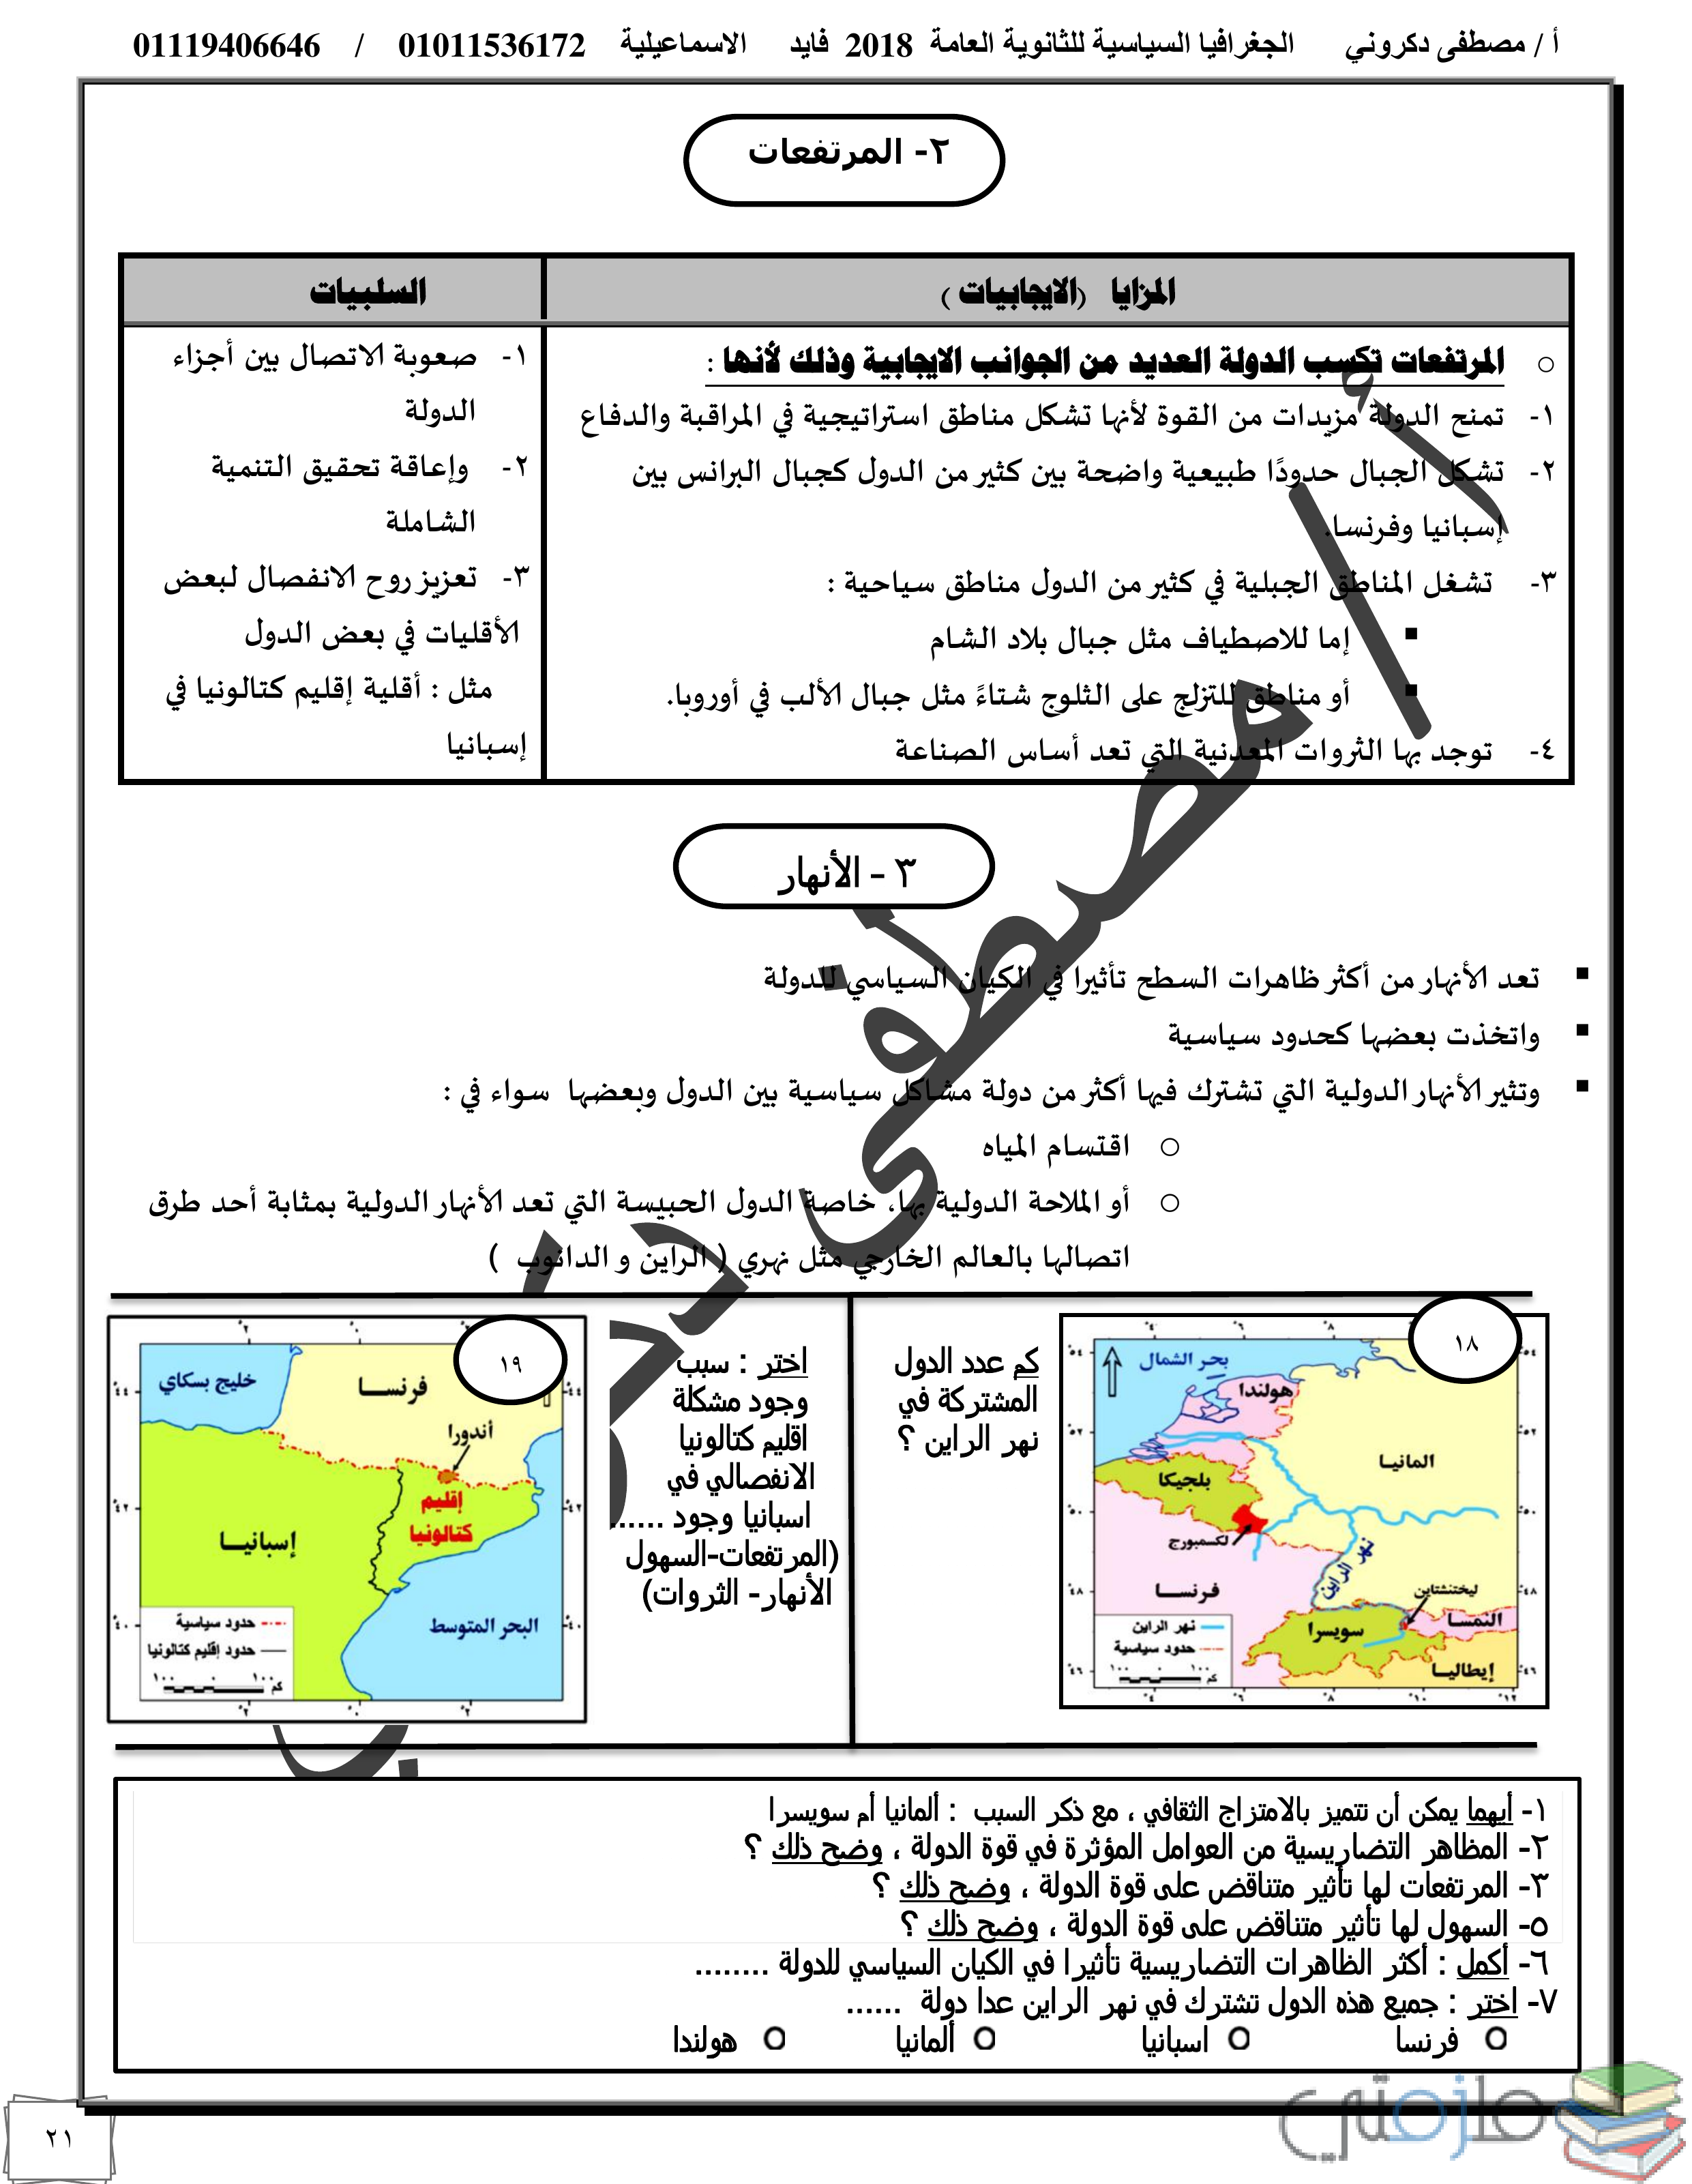 أ / مصطفى دكروني الجغرافيا السياسية للثانوية العامة 2018 فايد الاسماعيلية 01011536172 / 01119406646
٢- المرتفعات
المزايا (الايجابيات )
○ المرتفعات تكسب الدولة العديد من الجوانب الايجابية وذلك لأنها :
١- تمنح الدولة مزيدات من القوة لأنها تشكل مناطق استراتيجية في المراقبة والدفاع
٢- تشكل الجبال حدودًا طبيعية واضحة بين كثير من الدول كجبال البرانس بين
إسبانيا وفرنسا.
٣- تشغل المناطق الجبلية في كثير من الدول مناطق سياحية :
▪ إما للاصطياف مثل جبال بلاد الشام
▪ أو مناطق للتزلج على الثلوج شتاءً مثل جبال الألب في أوروبا.
٤- توجد بها الثروات المعدنية التي تعد أساس الصناعة
السلبيات
١- صعوبة الاتصال بين أجزاء
الدولة
٢- وإعاقة تحقيق التنمية
الشاملة
٣- تعزيز روح الانفصال لبعض
الأقليات في بعض الدول
مثل : أقلية إقليم كتالونيا في
إسبانيا
٣ – الأنهار
▪ تعد الأنهار من أكثر ظاهرات السطح تأثيرا في الكيان السياسي للدولة
▪ واتخذت بعضها كحدود سياسية
▪ وتثير الأنهار الدولية التي تشترك فيها أكثر من دولة مشاكل سياسية بين الدول وبعضها سواء في :
○ اقتسام المياه
○ أو الملاحة الدولية بها، خاصة الدول الحبيسة التي تعد الأنهار الدولية بمثابة أحد طرق
اتصالها بالعالم الخارجي مثل نهري ( الراين و الدانوب )
١٨
بحر الشمال
هولندا
المانيا
بلجيكا
لكسمبورج
نهر الراين
فرنسا
ليختنشتاين
النمسا
سويسرا
إيطاليا
نهر الراين
حدود سياسية
١٠٠ ٠ ١٠٠ كم
كم عدد الدول
المشتركة في
نهر الراين ؟
اختر : سبب
وجود مشكلة
اقليم كتالونيا
الانفصالي في
اسبانيا وجود ......
(المرتفعات-السهول
الأنهار- الثروات)
١٩
خليج بسكاي
فرنسا
أندورا
إقليم
كتالونيا
إسبانيا
البحر المتوسط
حدود سياسية
حدود إقليم كتالونيا
١٠٠ ٠ ١٠٠ كم
١- أيهما يمكن أن تتميز بالامتزاج الثقافي ، مع ذكر السبب : ألمانيا أم سويسرا
٢- المظاهر التضاريسية من العوامل المؤثرة في قوة الدولة ، وضح ذلك ؟
٣- المرتفعات لها تأثير متناقض على قوة الدولة ، وضح ذلك ؟
٥- السهول لها تأثير متناقض على قوة الدولة ، وضح ذلك ؟
٦- أكمل : أكثر الظاهرات التضاريسية تأثيرا في الكيان السياسي للدولة ........
٧- اختر : جميع هذه الدول تشترك في نهر الراين عدا دولة ......
○ فرنسا ○ اسبانيا ○ ألمانيا ○ هولندا
ملزمتي
٢١